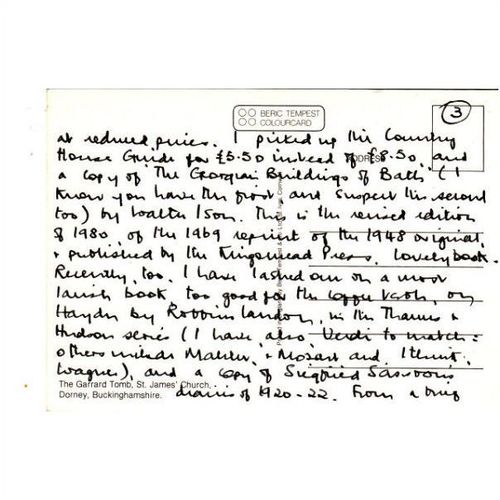 BERIC TEMPEST
COLOURCARD
3
at reduced prices. I picked up the Country
House Guide for £5.50 instead of £8.50, and
ADDRESS
a copy of The Georgian Buildings of Bath (I
know you have the first and suspect the second
too) by Walter Ison. This is the revised edition
of 1980, of the 1969 reprint of the 1948 original,
& published by the Kingsmead Press. Lovely book.
Recently, too, I have lashed out on a most
lavish book, too good for the coffee table, on
Haydn by Robbins Landon, in the Thames &
Hudson series (I have also Verdi to match:
others include Mahler, & Mozart and I think
Wagner), and a copy of Siegfried Sassoon's
diaries of 1920-22. From a brief
The Garrard Tomb, St. James' Church,
Dorney, Buckinghamshire.